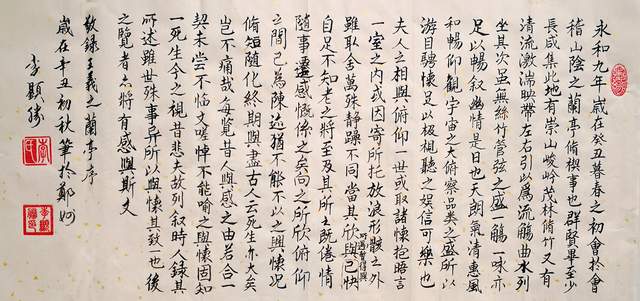 永和九年歲在癸丑暮春之初會於會
稽山陰之蘭亭脩稧事也群賢畢至少
長咸集此地有崇山峻岭茂林脩竹又有
清流激湍映帶左右引以為流觴曲水列
坐其次虽無絲竹管弦之盛一觴一咏亦
足以暢叙幽情是日也天朗氣清惠風
和暢仰觀宇宙之大俯察品类之盛所以
游目騁懷足以極視聽之娱信可樂也
夫人之相與俯仰一世或取諸懷抱晤言
一室之内或因寄所托放浪形骸之外
雖取舍萬殊静躁不同當其欣與己快
所遇暫得與
自足不知老之將至及其所之既倦情
隨事遷感慨係之矣向之所欣俯仰
之間已為陳迹猶不能不以之興懷况
脩短随化終期與盡古人云死生亦大矣
豈不痛哉每覧昔人興感之由若合一
契未嘗不临文嗟悼不能喻之與懷固知
一死生今之視昔悲夫故列叙時人録其
所述雖世殊事异所以興懷其致一也後
之覽者亦將有感與斯文
敬録王羲之蘭亭序
歲在辛丑初秋筆於鄭州
李顯勝